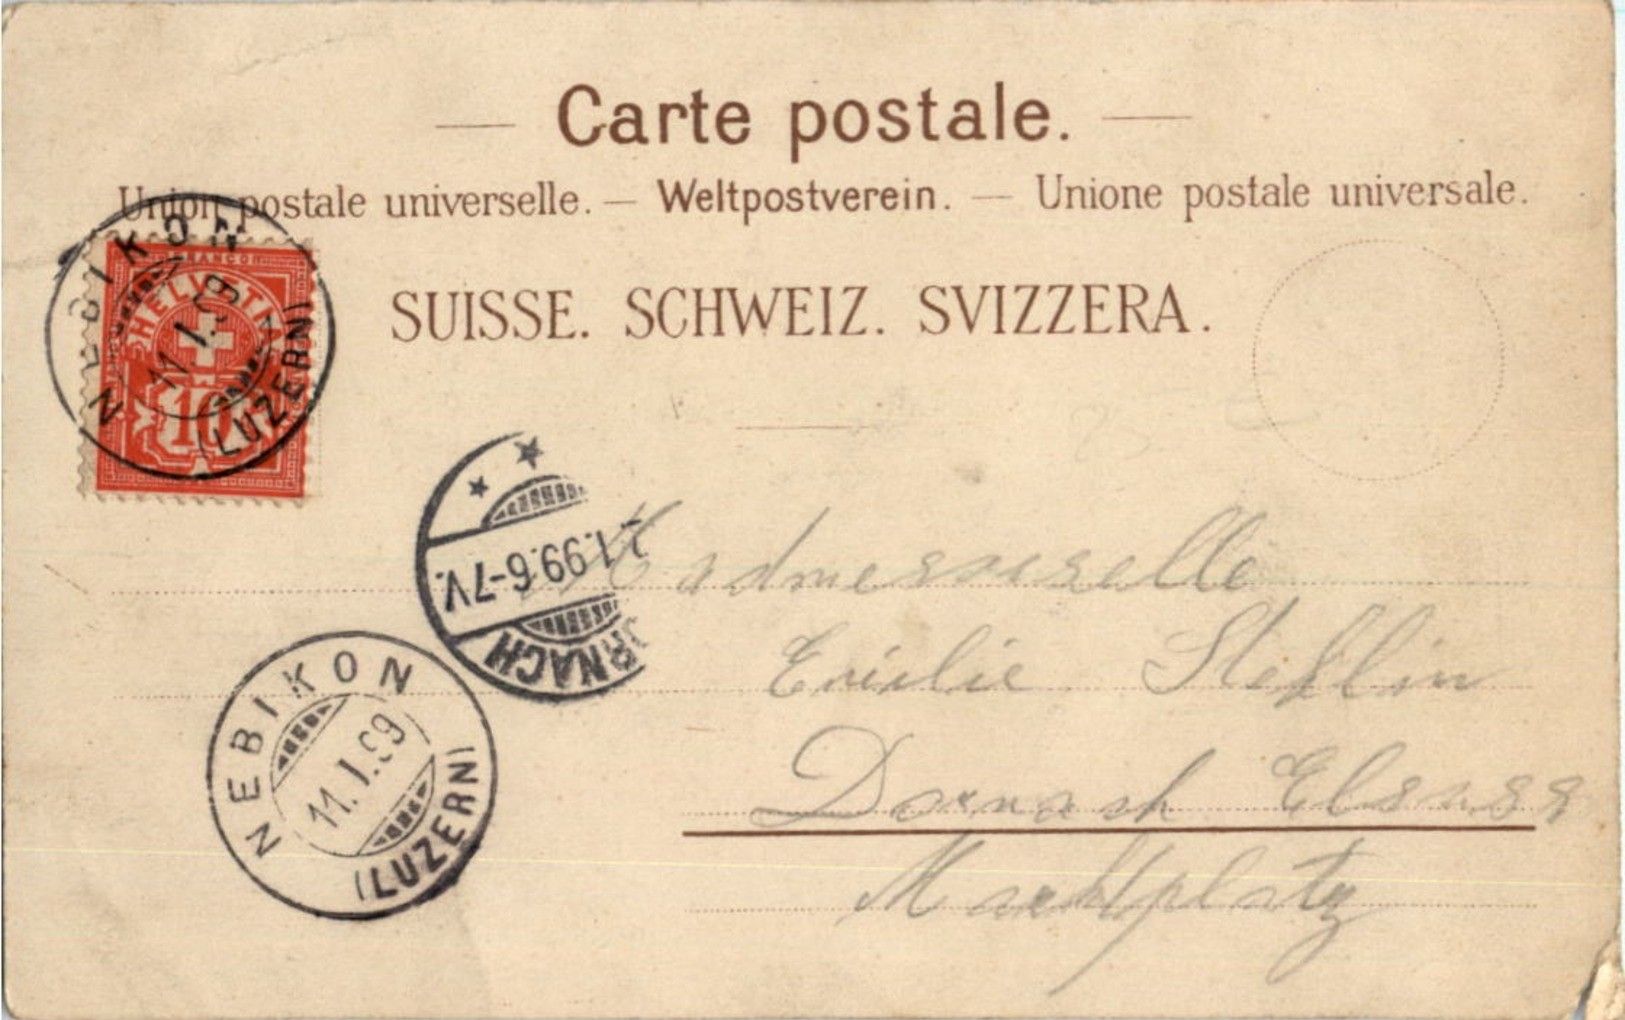 Carte postale.
Union postale universelle. — Weltpostverein. — Unione postale universale.
SUISSE. SCHWEIZ. SVIZZERA.
FRANCO
HELVETIA
10
NEBIKON
11.I.99
(LUZERN)
1.99.6-7V.
RNACH
NEBIKON
11.I.99
(LUZERN)
Mademoiselle
Emilie
Dornach Elsass
Marktplatz